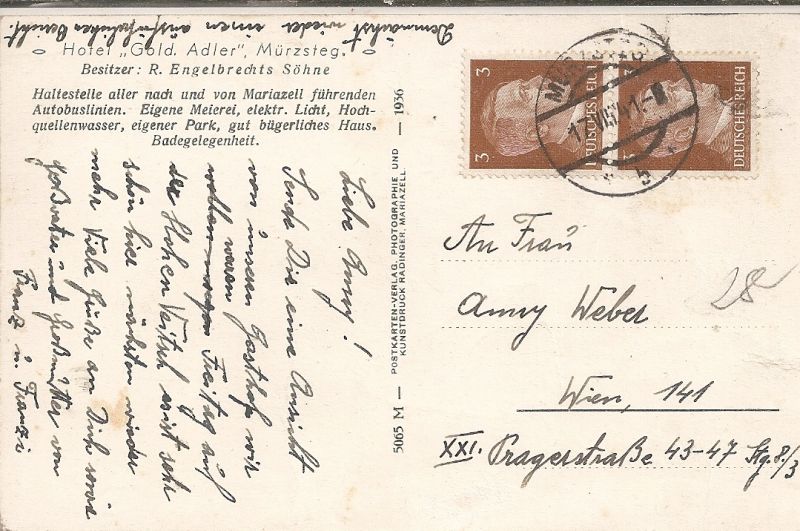 Demnächst wieder einen ausführlichen Bericht.
Hotel „Gold. Adler", Mürzsteg.
Besitzer: R. Engelbrechts Söhne
Haltestelle aller nach und von Mariazell führenden
Autobuslinien. Eigene Meierei, elektr. Licht, Hoch-
quellenwasser, eigener Park, gut bügerliches Haus.
Badegelegenheit.
Liebe Anny!
Sende Dir eine Ansicht
von unserm Gasthof wir
waren
wollten Freitag auf
der Hohen Veitsch es ist sehr
schön hier nächsten wieder
mehr Viele Grüße an Dich sowie
Großvater und Großmutter von
Franz u. Franzi
5065 M — POSTKARTEN-VERLAG, PHOTOGRAPHIE UND — 1936
KUNSTDRUCK RADINGER, MARIAZELL
3
DEUTSCHES REICH
3
DEUTSCHES REICH
MÜRZSTEG
41-8
b
An Frau
Anny Weber
28
Wien, 141
XXI. Pragerstraße 43-47 Stg. 8/3